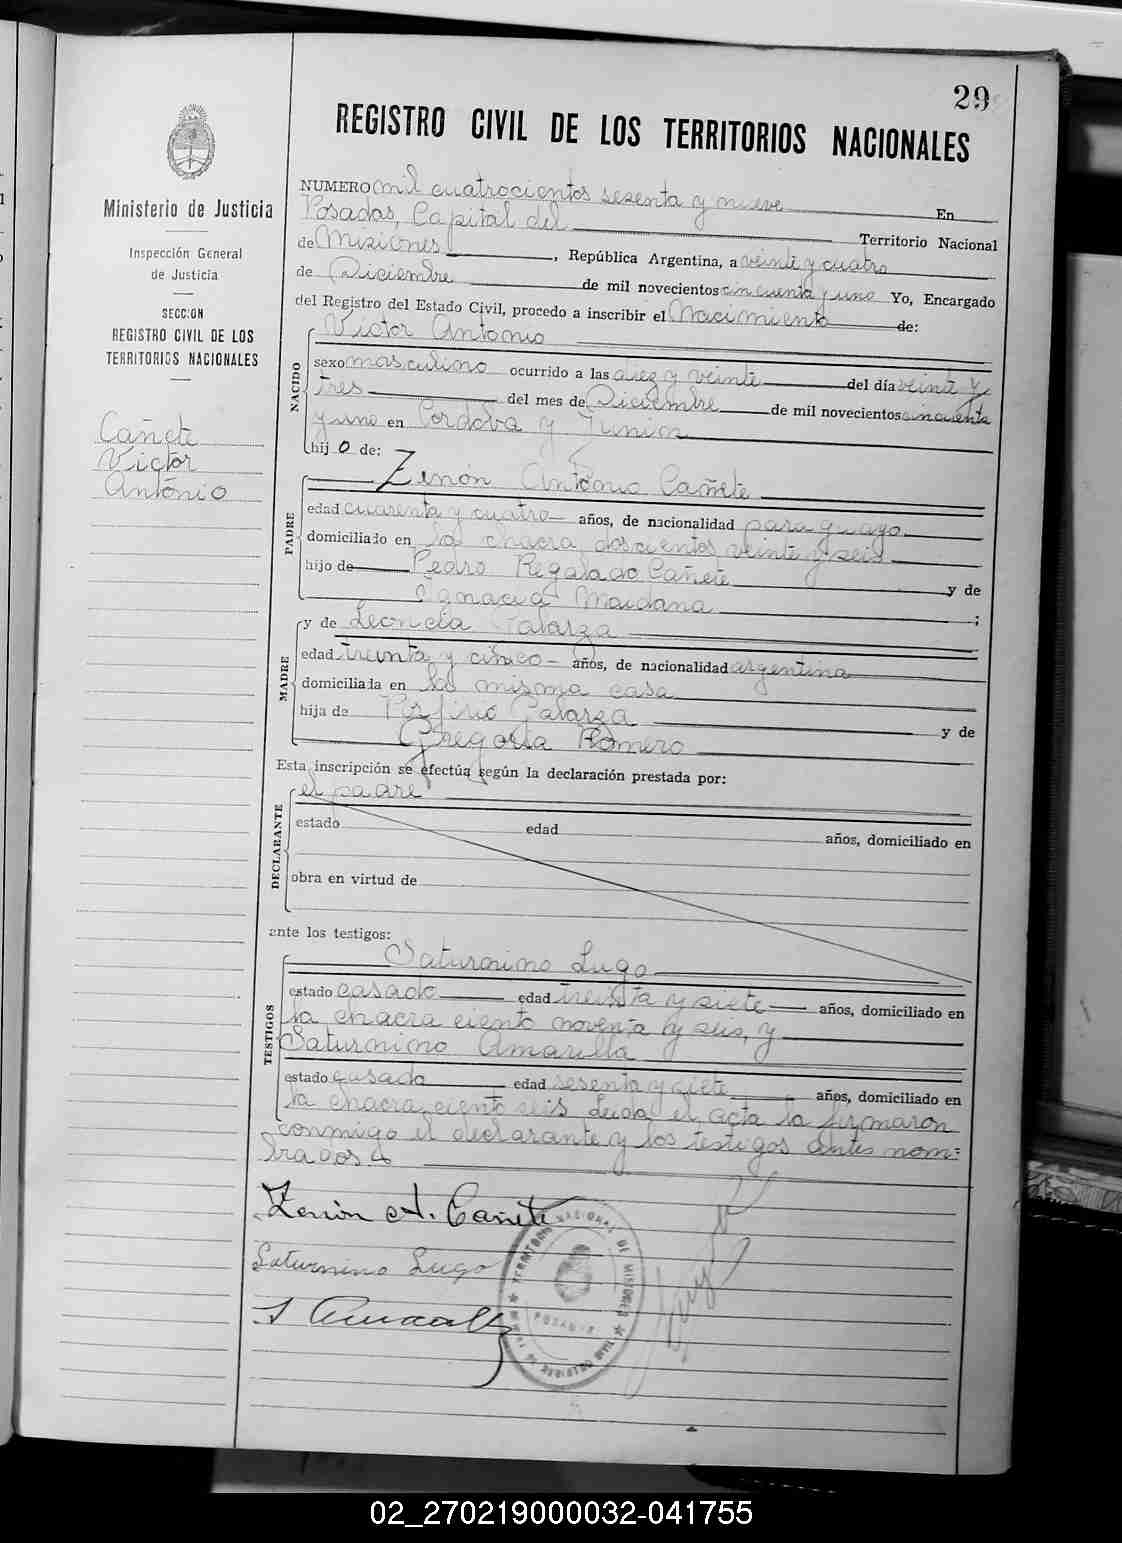 29
REGISTRO CIVIL DE LOS TERRITORIOS NACIONALES
Ministerio de Justicia
Inspección General
de Justicia
SECCION
REGISTRO CIVIL DE LOS
TERRITORIOS NACIONALES
Cañete
Victor
Antonio
NUMERO mil cuatrocientos sesenta y nueve En
Posadas, Capital del Territorio Nacional
de Misiones, República Argentina, a veinte y cuatro
de Diciembre de mil novecientos cincuenta y uno Yo, Encargado
del Registro del Estado Civil, procedo a inscribir el Nacimiento de:
NACIDO
Victor Antonio
sexo masculino ocurrido a las diez y veinte del día veinte y
tres del mes de Diciembre de mil novecientos cincuenta
y uno en Cordoba y Junin
hijo de:
PADRE
Zenón Antonio Cañete
edad cuarenta y cuatro años, de nacionalidad paraguayo
domiciliado en la chacra doscientos veinte y seis
hijo de Pedro Regalado Cañete y de
Ignacia Maidana ;
MADRE
y de Leoncia Galarza
edad treinta y cinco años, de nacionalidad argentina
domiciliada en la misma casa
hija de Porfirio Galarza y de
Gregoria Romero
Esta inscripción se efectúa según la declaración prestada por:
DECLARANTE
el padre
estado edad años, domiciliado en
obra en virtud de
ante los testigos:
TESTIGOS
Saturnino Lugo
estado casado edad treinta y siete años, domiciliado en
la chacra ciento noventa y seis, y
Saturnino Amarilla
estado casado edad sesenta y siete años, domiciliado en
la chacra ciento seis Leida el acta la firmaron
conmigo el declarante y los testigos antes nom=
brados
Zenón A. Cañete
Saturnino Lugo
S Amarilla
TERRITORIO NACIONAL DE MISIONES
POSADAS
02_270219000032-041755